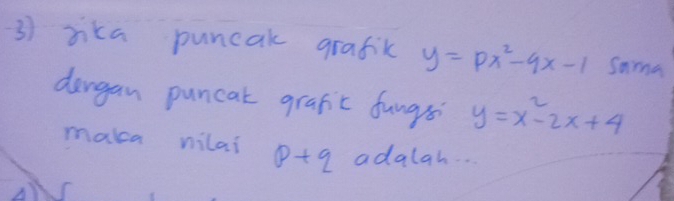 3) Jika puncak grafik y = px²-qx-1 sama
dengan puncak grafik fungsi y = x²-2x+4
maka nilai p+q adalah...
4)